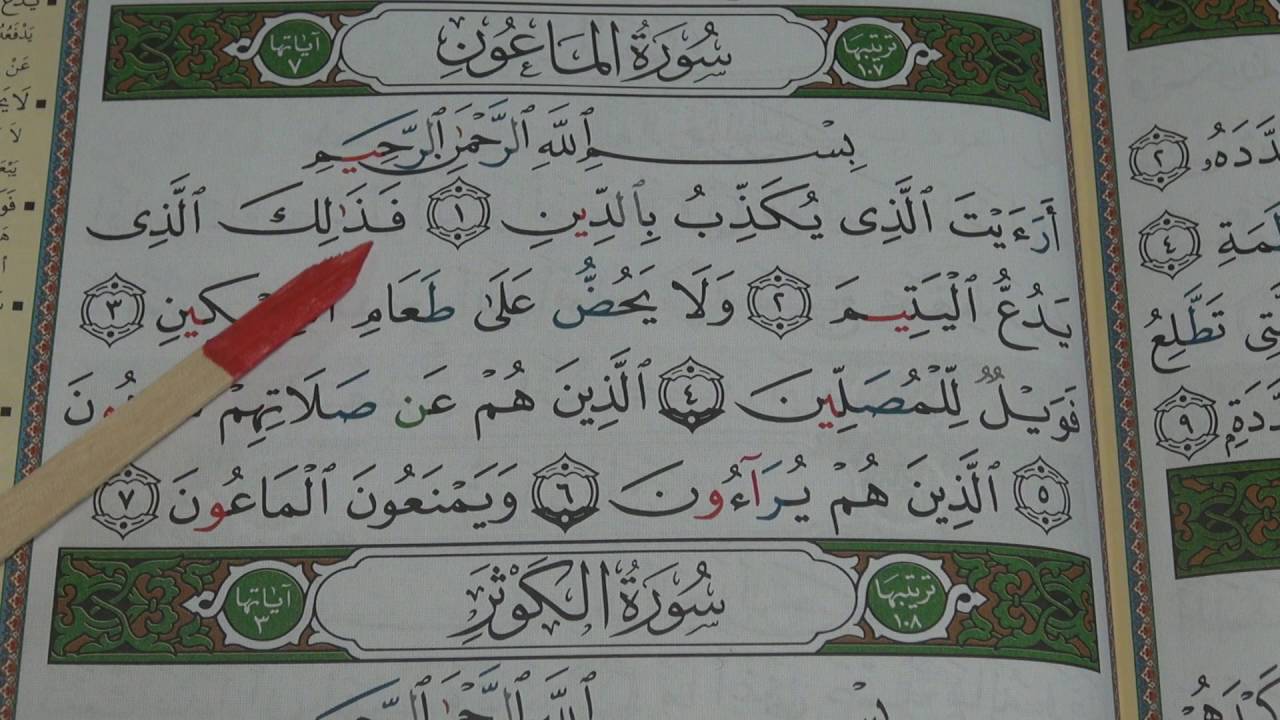 آياتها ٧ سُورَةُ المَاعُونِ ترتيبها ١٠٧
بِسْمِ ٱللَّهِ ٱلرَّحْمَٰنِ ٱلرَّحِيمِ
أَرَءَيْتَ ٱلَّذِى يُكَذِّبُ بِٱلدِّينِ ١ فَذَٰلِكَ ٱلَّذِى
يَدُعُّ ٱلْيَتِيمَ ٢ وَلَا يَحُضُّ عَلَىٰ طَعَامِ ٣
فَوَيْلٌ لِّلْمُصَلِّينَ ٤ ٱلَّذِينَ هُمْ عَن صَلَاتِهِمْ
٥ ٱلَّذِينَ هُمْ يُرَآءُونَ ٦ وَيَمْنَعُونَ ٱلْمَاعُونَ ٧
آياتها ٣ سُورَةُ الكَوْثَرِ ترتيبها ١٠٨
٢
٤
تَطَّلِعُ
٩